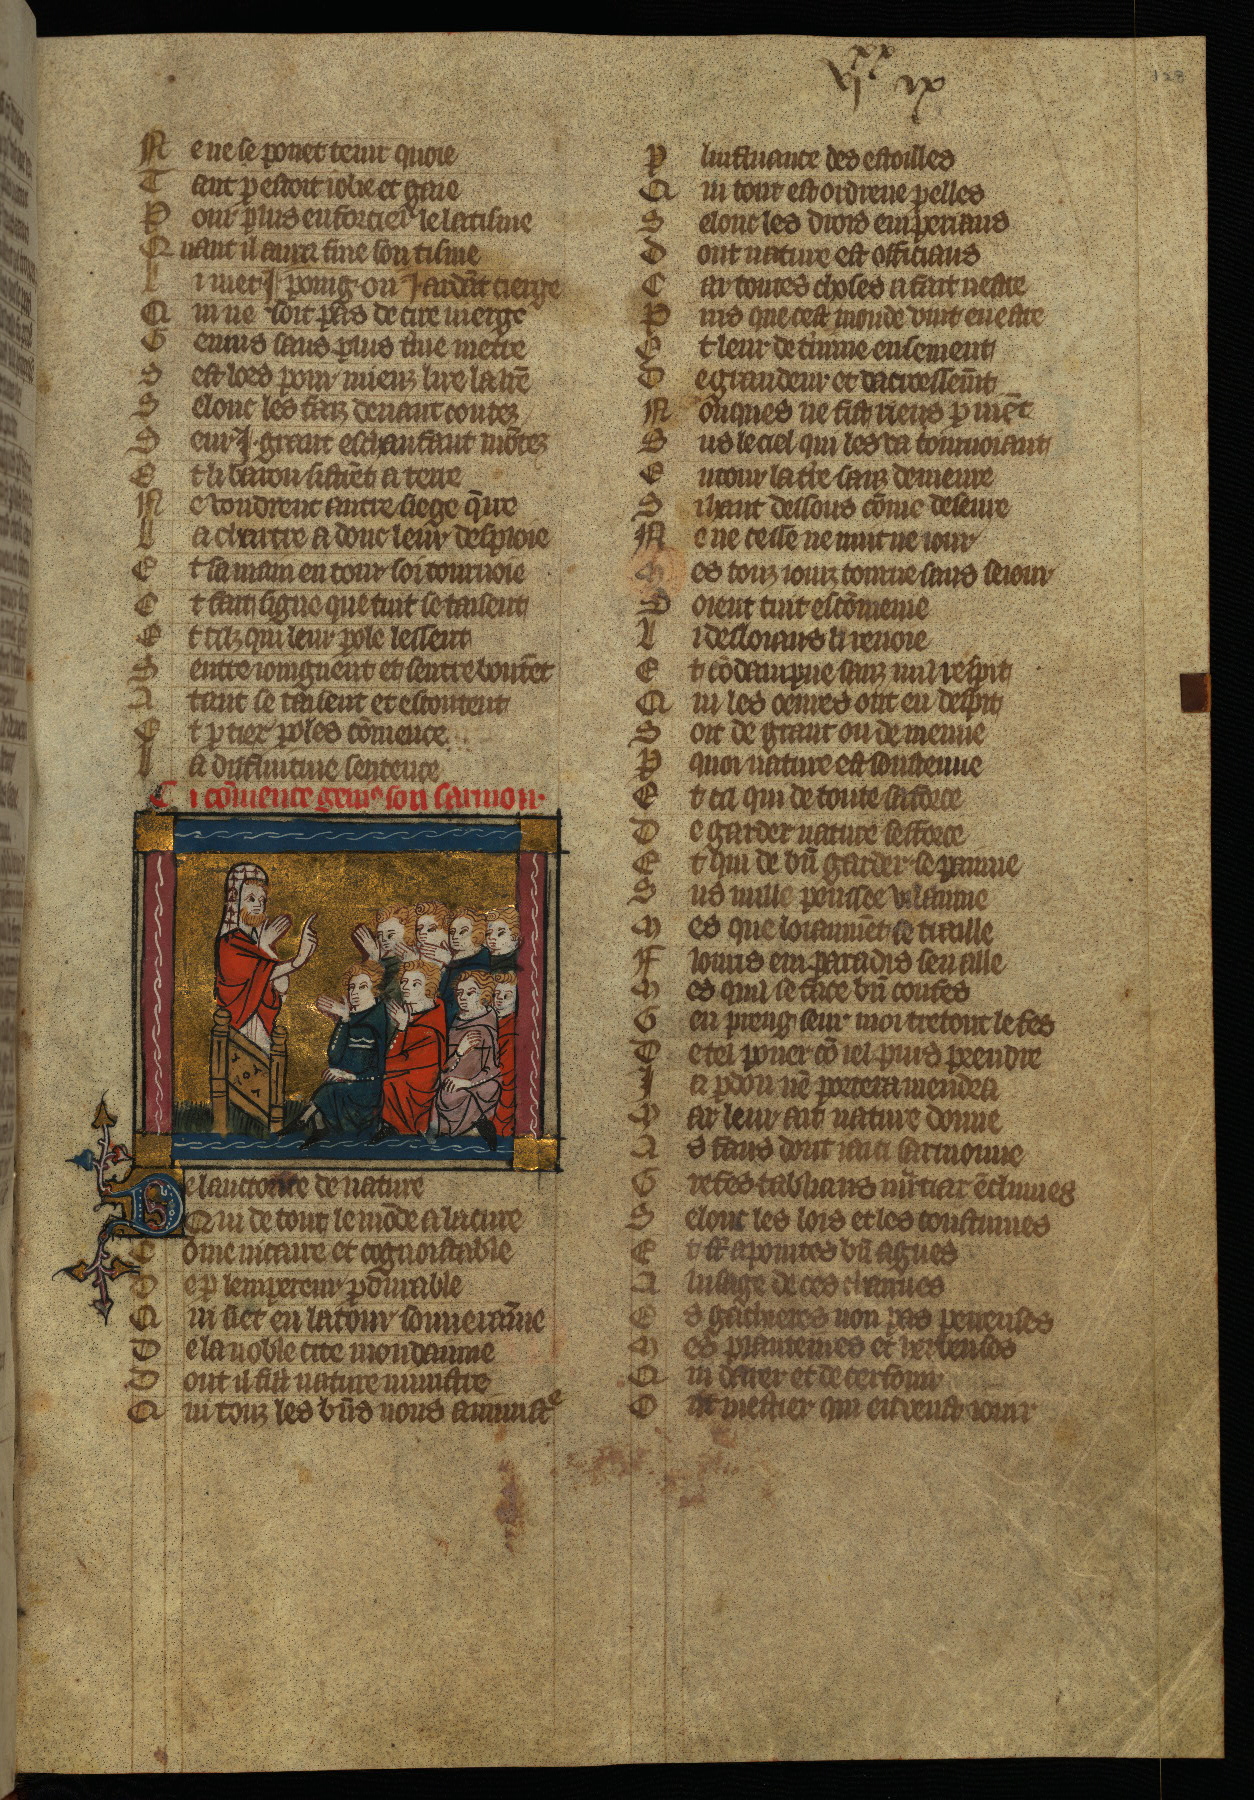 vi xx ix
128
N e ne se pouet tenir quoie
T ant p estoit iolie et gaie
P our plus enforcier le latisme
Q uant il aura fine son tisme
L i met .j. poing ou .j. ardāt cierge
Q ui ne soit pas de cire vierge
G enius sans plus
S est lors pour mieuz lire la
S elonc les faiz deuant contez
S eur .j. grant eschaufaut mōtez
E t li baron sistrēt a terre
N e voudrent autre siege q̄rre
L a chartre a donc leur desploie
E t sa main entour soi tournoie
E t fait signe que tuit se taisent
E t cilz qui leur pole
S entre
A tant se taisent et escoutent
E t p tiex poles cōmence
L a diffinitiue sentence
C i cōmence geniꝰ son sarmon.
D e lauctorite de nature
Q ui de tout le mōde a la cure
C ōme vicaire et cognoistable
D e p lempereur pdurable
Q ui siet en la tour souueraīne
D e la noble cite mondainne
D ont il fist nature ministre
Q ui touz les bn̄s nous aministre
P linfluance des estoilles
Q ui tout est ordrene p elles
S elonc les drois emperiaus
D ont nature est officiaus
C ar toutes choses a fait nestre
P uis que cest monde vint en estre
E t leur determine ensement
D e grandeur et dacroissemēt
N onques ne fist riens p
S us le ciel qui les va tournoiant
E ntour la tre sanz demeure
S i haut dessous cōme deseure
N e ne cesse ne nuit ne iour
M es touz iourz tourne sans seiour
S oient tuit escōmenie
L i desloiaus li renoie
E t cōdampne sanz nul respit
Q ui les oeuures ont en despit
S oit de grant ou de menue
P quoi nature est soustenue
E t cil qui de toute sa force
D e garder nature sefforce
E t qui de bn̄ garder se painne
S us nulle pensee vilainne
M es que loiaumēt se
F louris em paradis sen aille
M es quil se face bn̄ confes
G en preng seur moi trestout le fes
D e tel pouer cō iel puis prendre
J a pdon nē portera mendra
M ar leur ait nature donne
A s faus dont ici sarmonne
G refes tables
S elonc les lois et les coustumes
E t
A lusage de ces
E s
M
Q ui
O nt mestier qui en veust iouir